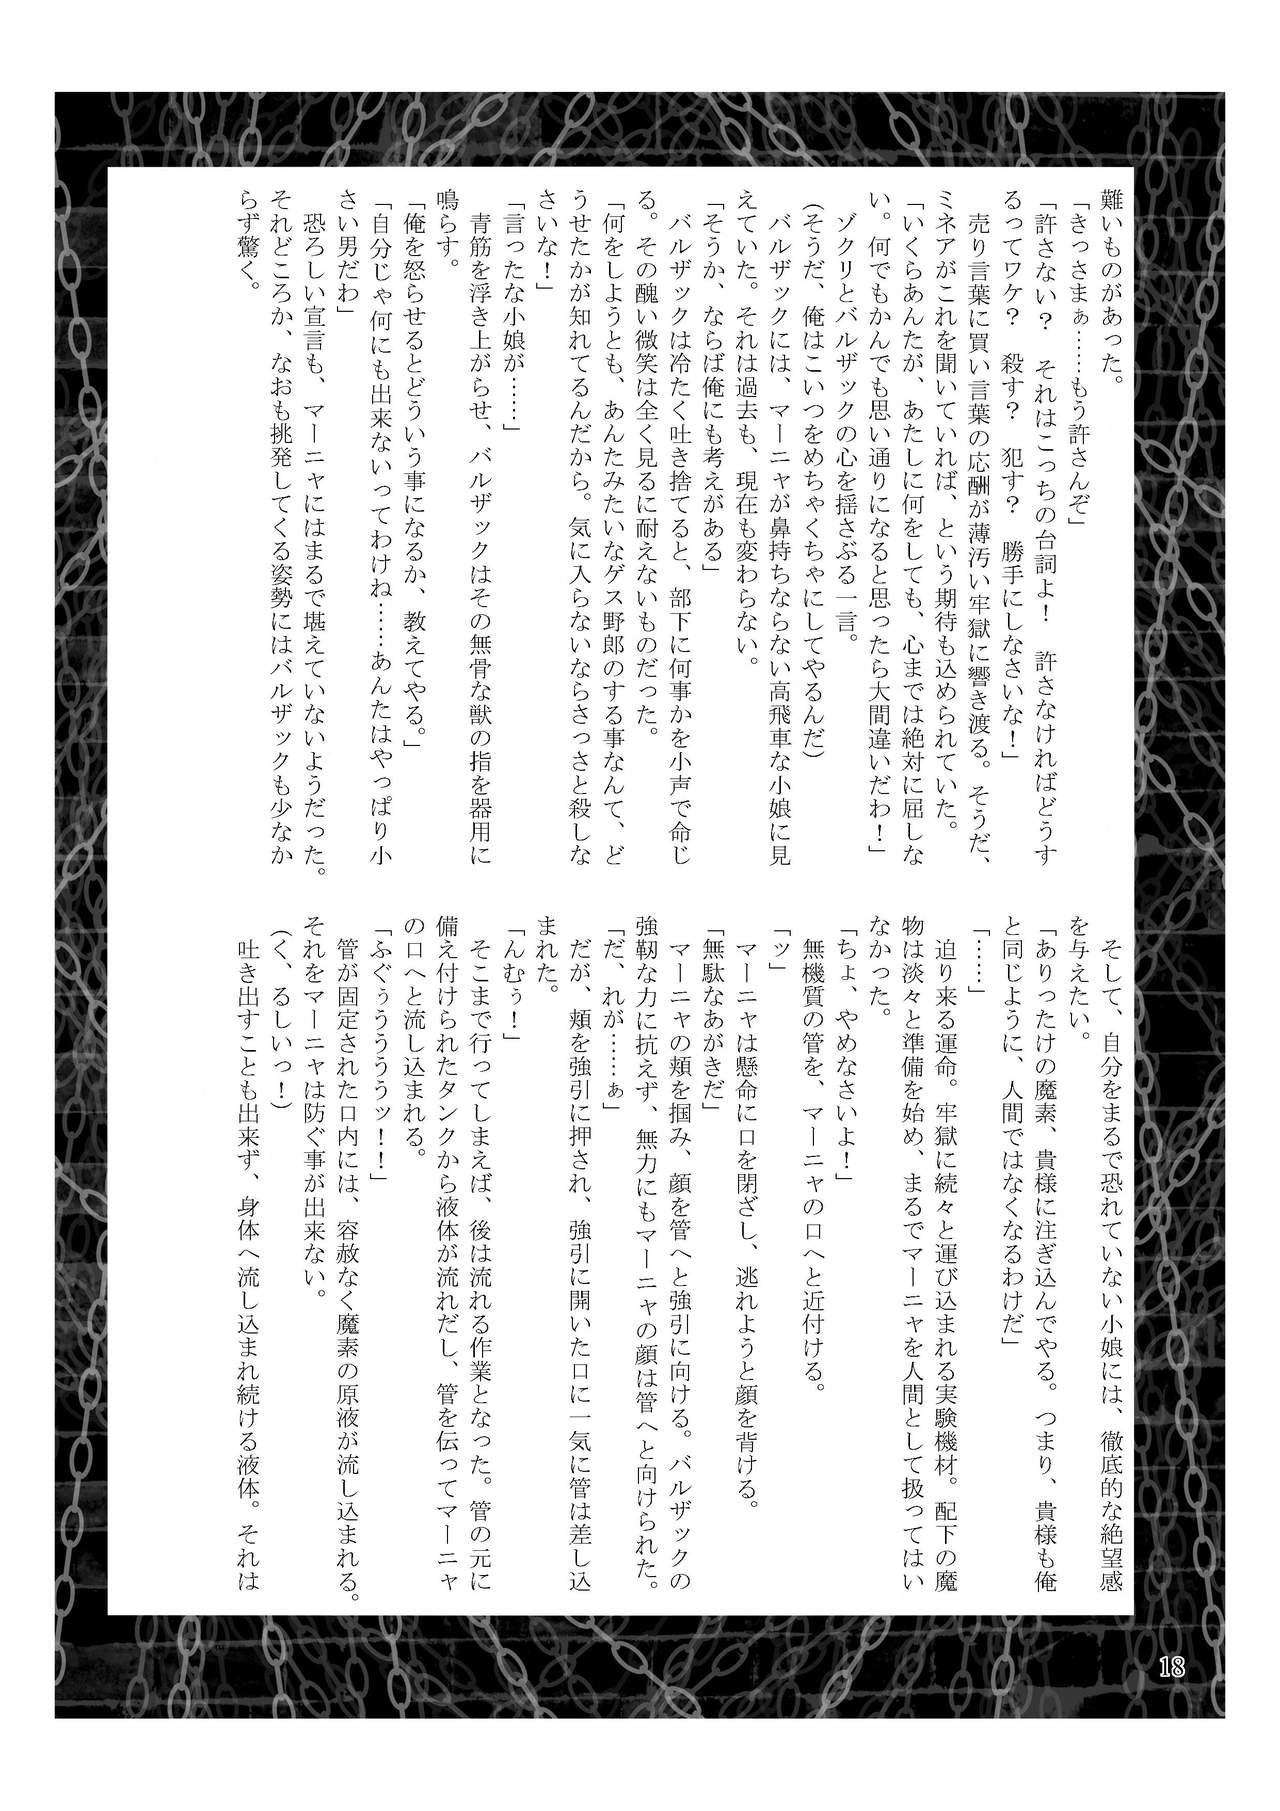 難いものがあった。
「きっさまぁ……もう許さんぞ」
「許さない？　それはこっちの台詞よ！　許さなければどうす
るってワケ？　殺す？　犯す？　勝手にしなさいな！」
　売り言葉に買い言葉の応酬が薄汚い牢獄に響き渡る。そうだ、
ミネアがこれを聞いていれば、という期待も込められていた。
「いくらあんたが、あたしに何をしても、心までは絶対に屈しな
い。何でもかんでも思い通りになると思ったら大間違いだわ！」
　ゾクリとバルザックの心を揺さぶる一言。
（そうだ、俺はこいつをめちゃくちゃにしてやるんだ）
　バルザックには、マーニャが鼻持ちならない高飛車な小娘に見
えていた。それは過去も、現在も変わらない。
「そうか、ならば俺にも考えがある」
　バルザックは冷たく吐き捨てると、部下に何事かを小声で命じ
る。その醜い微笑は全く見るに耐えないものだった。
「何をしようとも、あんたみたいなゲス野郎のする事なんて、ど
うせたかが知れてるんだから。気に入らないならさっさと殺しな
さいな！」
「言ったな小娘が……」
　青筋を浮き上がらせ、バルザックはその無骨な獣の指を器用に
鳴らす。
「俺を怒らせるとどういう事になるか、教えてやる。」
「自分じゃ何にも出来ないってわけね……あんたはやっぱり小
さい男だわ」
　恐ろしい宣言も、マーニャにはまるで堪えていないようだった。
それどころか、なおも挑発してくる姿勢にはバルザックも少なか
らず驚く。
　そして、自分をまるで恐れていない小娘には、徹底的な絶望感
を与えたい。
「ありったけの魔素、貴様に注ぎ込んでやる。つまり、貴様も俺
と同じように、人間ではなくなるわけだ」
「……」
　迫り来る運命。牢獄に続々と運び込まれる実験機材。配下の魔
物は淡々と準備を始め、まるでマーニャを人間として扱ってはい
なかった。
「ちょ、やめなさいよ！」
　無機質の管を、マーニャの口へと近付ける。
「ッ」
　マーニャは懸命に口を閉ざし、逃れようと顔を背ける。
「無駄なあがきだ」
　マーニャの頬を掴み、顔を管へと強引に向ける。バルザックの
強靭な力に抗えず、無力にもマーニャの顔は管へと向けられた。
「だ、れが……ぁ」
　だが、頬を強引に押され、強引に開いた口に一気に管は差し込
まれた。
「んむぅ！」
　そこまで行ってしまえば、後は流れる作業となった。管の元に
備え付けられたタンクから液体が流れだし、管を伝ってマーニャ
の口へと流し込まれる。
「ふぐぅぅぅぅぅッ！！」
　管が固定された口内には、容赦なく魔素の原液が流し込まれる。
それをマーニャは防ぐ事が出来ない。
（く、るしいっ！）
　吐き出すことも出来ず、身体へ流し込まれ続ける液体。それは
18